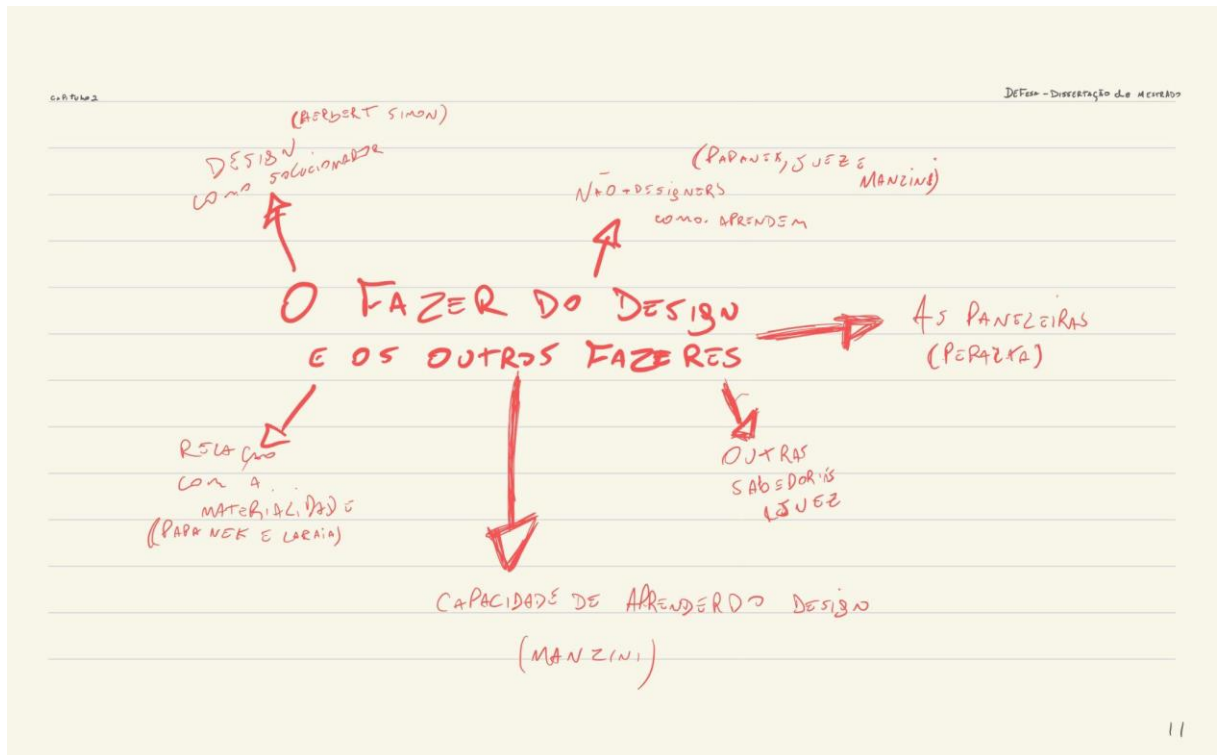 CAPÍTULO 2
DEFESA - DISSERTAÇÃO de MESTRADO
(HERBERT SIMON)
DESIGN
COMO SOLUCIONADOR
(PAPANEK, JUEZ E
MANZINI)
NÃO-DESIGNERS
COMO APRENDEM
O FAZER DO DESIGN
E OS OUTROS FAZERES
AS PANELEIRAS
RELAÇÃO
COM A
MATERIALIDADE
(PAPANEK E LARAIA)
OUTRAS
JUEZ
CAPACIDADE DE APRENDER DO DESIGN
(MANZINI)
11